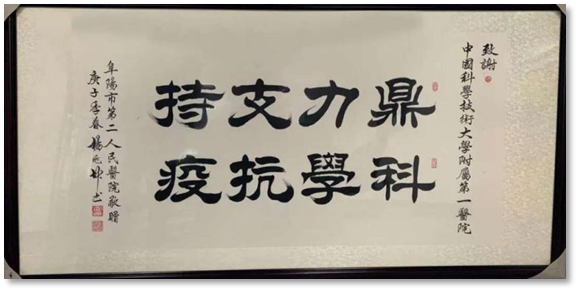 致謝
中國科學技術大學附屬第一醫院
鼎力支持
科學抗疫
阜陽市第二人民醫院敬贈
庚子季春楊